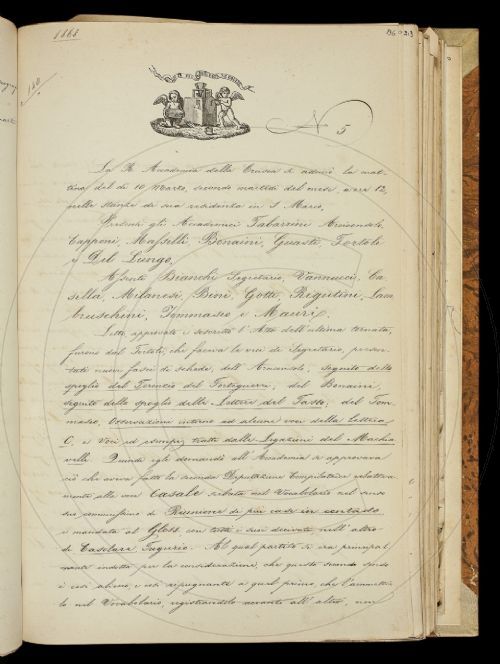 1868
N 5
La R. Accademia della Crusca si adunò la mat-
tina del dì 10 Marzo, secondo martedì del mese, a ore 12,
nelle stanze di sua residenza in S. Marco.
Presenti gli Accademici Tabarrini Arciconsolo,
Capponi, Maffelli, Bonaini, Guasti, Tortoli
e Del Lungo.
Assenti Bianchi Segretario, Vannucci, Ca-
sella, Milanesi, Bini, Gotti, Rigutini, Lam
bruschini, Tommaseo e Mauri.
Letto approvato e soscritto l'Atto dell'ultima tornata,
furono dal Tortoli, che faceva le veci di Segretario, presen-
tati nuovi fasci di schede, dell'Arciconsolo, seguito dello
spoglio del Terenzio del Fortiguerra, del Bonaini,
seguito dello spoglio delle Lettere del Tasso, del Tom
maseo, Osservazioni intorno ad alcune voci della lettera
C, e Voci ed esempj tratti dalle Legazioni del Machia
velli. Quindi egli domandò all'Accademia se approvava
ciò che aveva fatto la seconda Deputazione Compilatrice relativa-
mente alla voce Casale serbata nel Vocabolario nel senso
suo comunissimo di Riunione di più case in contado
e mandata al Gloss. con tutti i suoi derivati nell'altro
di Casolare Tugurio. Al qual partito si era principal
mente indotta per la considerazione, che questo secondo senso
è così alieno, e così ripugnante a quel primo, che l'ammetter-
lo nel Vocabolario, registrandolo accanto all'altro, non